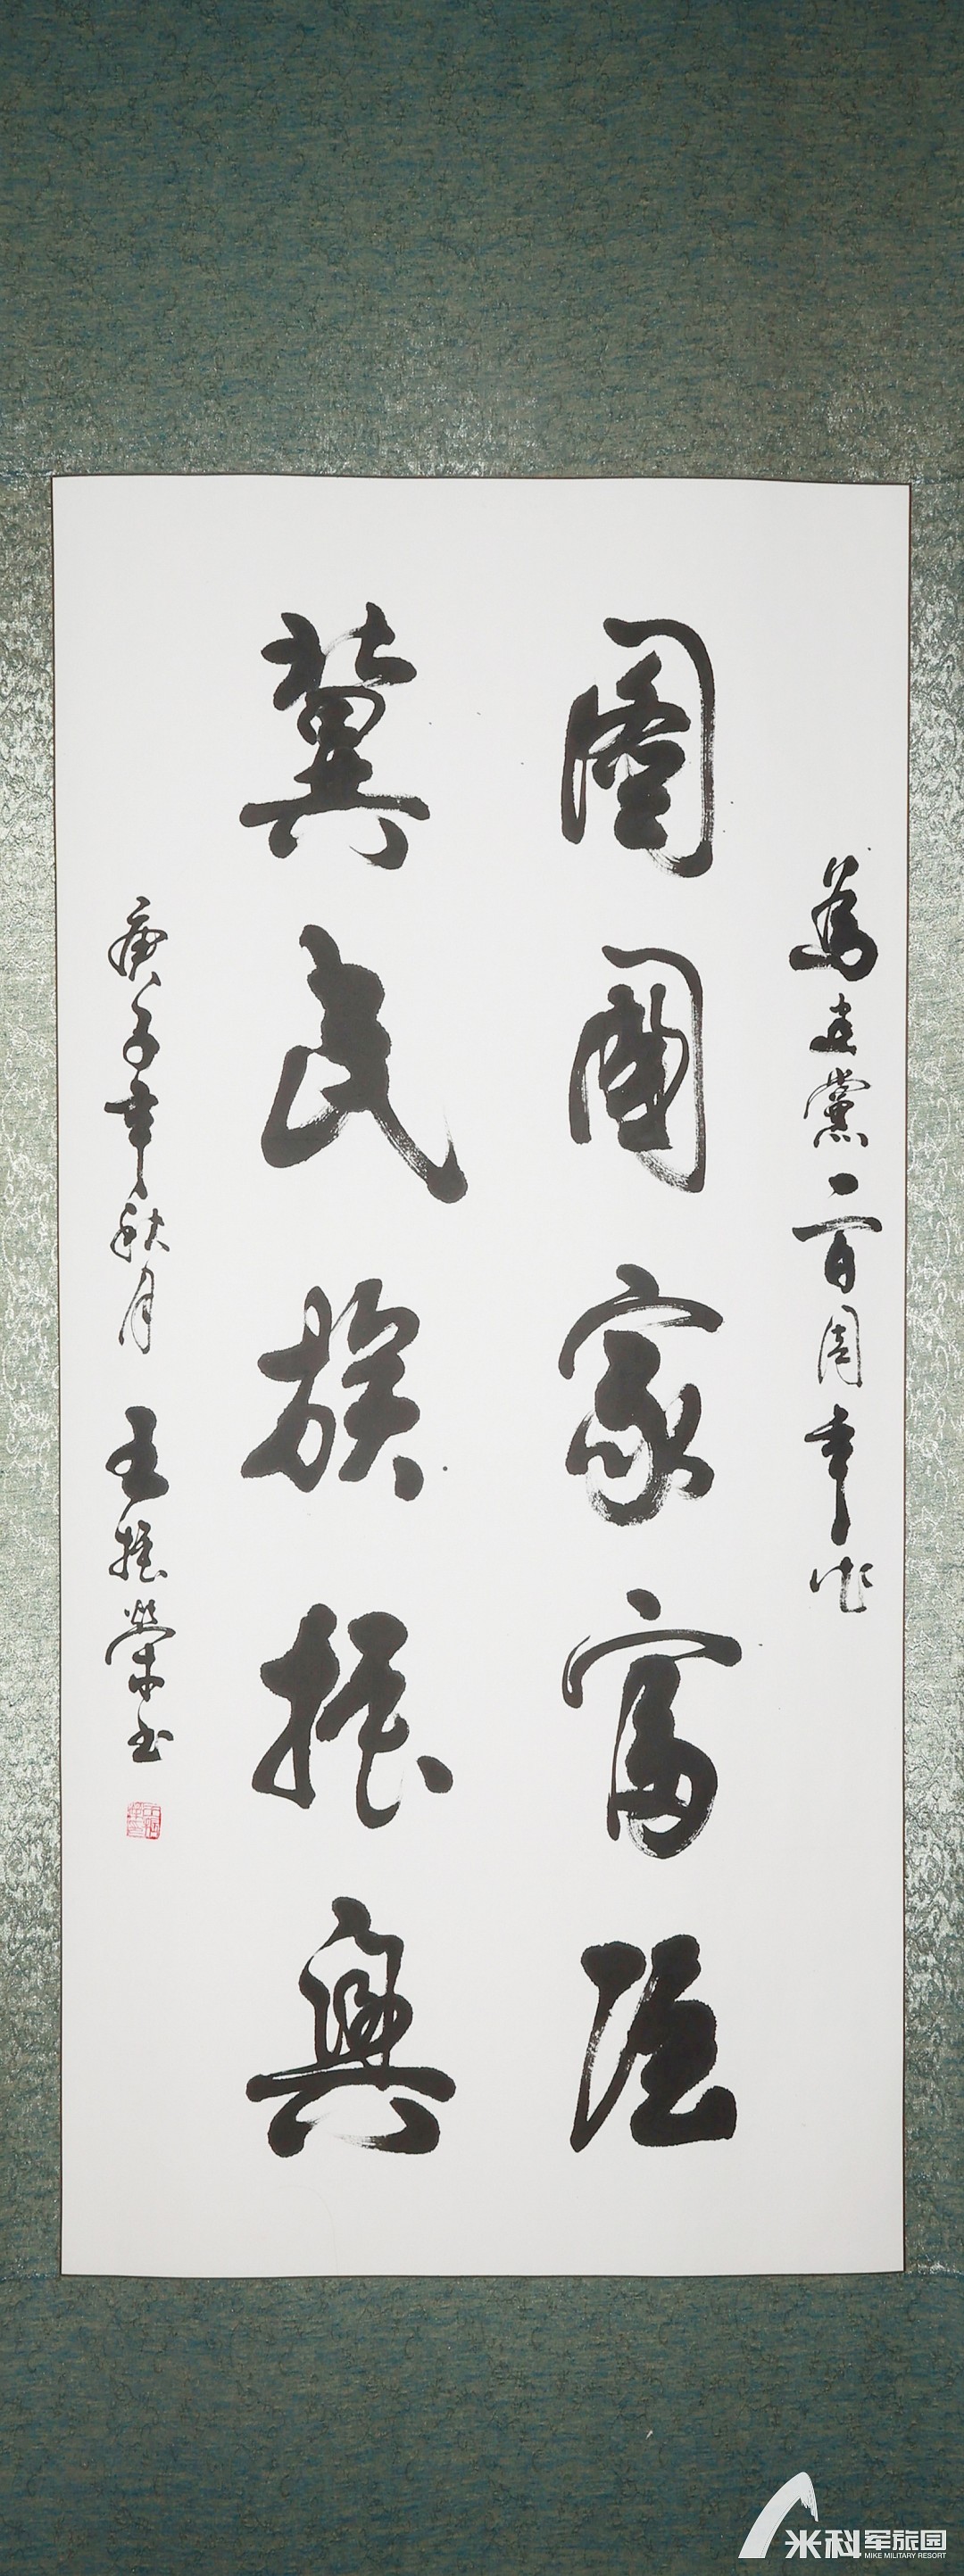 為建黨一百周年作
圖國家富強
冀民族振興
庚子年秋月 王振榮書
米科 军旅园
MIKE MILITARY RESORT